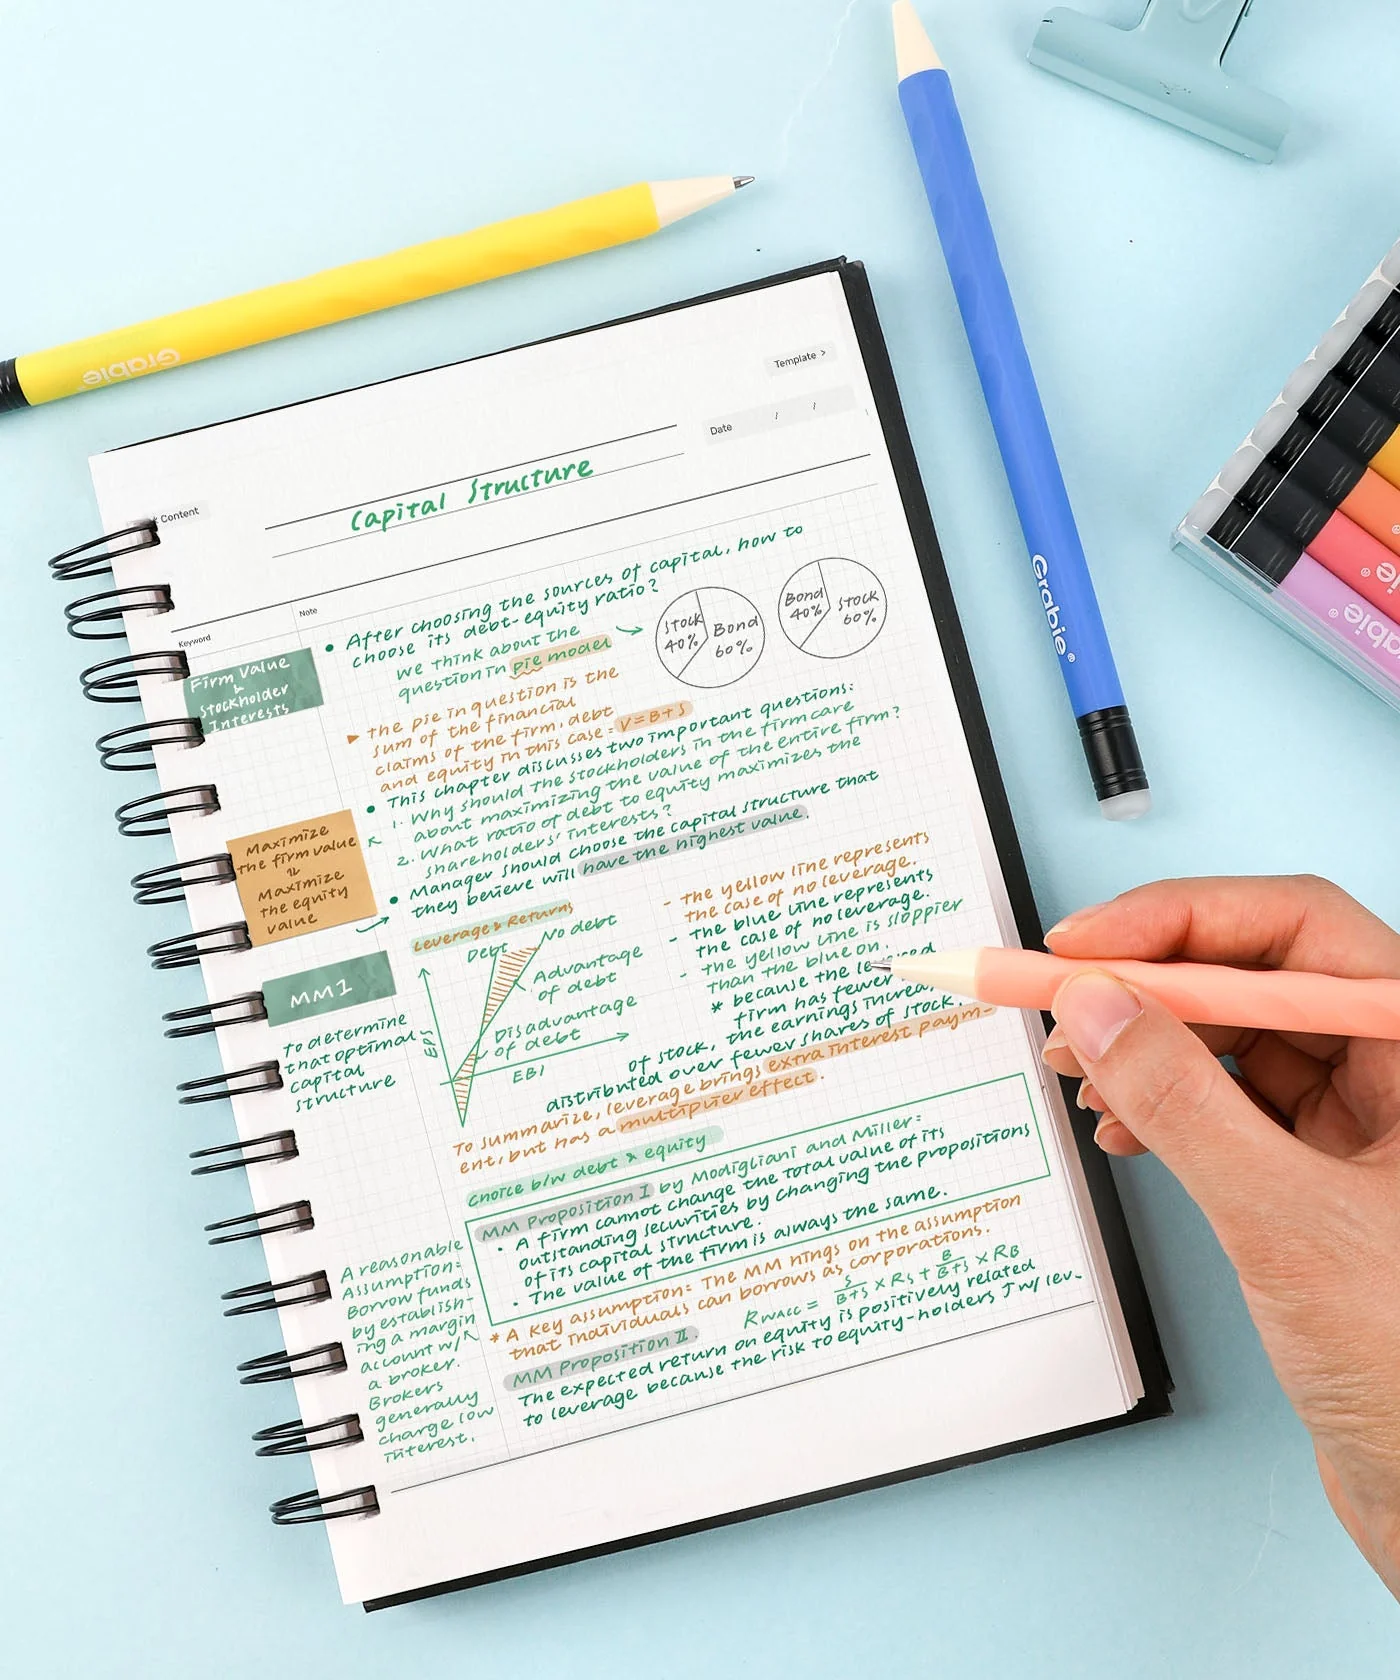 Grabie
Template >
Date / /
Content
Capital Structure
Keyword
Note
Firm Value
&
Stockholder
Interests
• After choosing the sources of capital, how to
choose its debt-equity ratio?
we think about the
question in pie model
Stock
40%
Bond
60%
Bond
40%
Stock
60%
▶ the pie in question is the
sum of the financial
claims of the firm, debt
and equity in this case: V=B+S
• This chapter discusses two important questions:
1. Why should the stockholders in the firm care
about maximizing the value of the entire firm?
2. What ratio of debt to equity maximizes the
shareholders' interests?
• Manager should choose the capital structure that
they believe will have the highest value.
Maximize
the firm value
Maximize
the equity
value
Leverage & Returns
Debt
No debt
Advantage
of debt
Disadvantage
of debt
EPS
EBI
- the yellow line represents
the case of no leverage.
- the blue line represents
the case of no leverage.
- the yellow line is sloppier
than the blue on.
* because the
firm has fewer
of stock, the earnings
distributed over fewer shares of stock.
To summarize, leverage brings extra interest paym-
ent, but has a multiplier effect.
MM1
To determine
that optimal
capital
structure
choice b/w debt & equity
MM Proposition I by Modigliani and Miller:
• A firm cannot change the total value of its
outstanding securities by changing the propositions
of its capital structure.
• The value of the firm is always the same.
* A key assumption: The MM hings on the assumption
that individuals can borrows as corporations.
RWACC = S/B+S × RS + B/B+S × RB
MM Proposition II.
The expected return on equity is positively related
to leverage because the risk to equity-holders J w/ lev-
A reasonable
Assumption:
Borrow funds
by establish-
ing a margin
account w/
a broker.
Brokers
generally
charge low
interest.
Grabie®